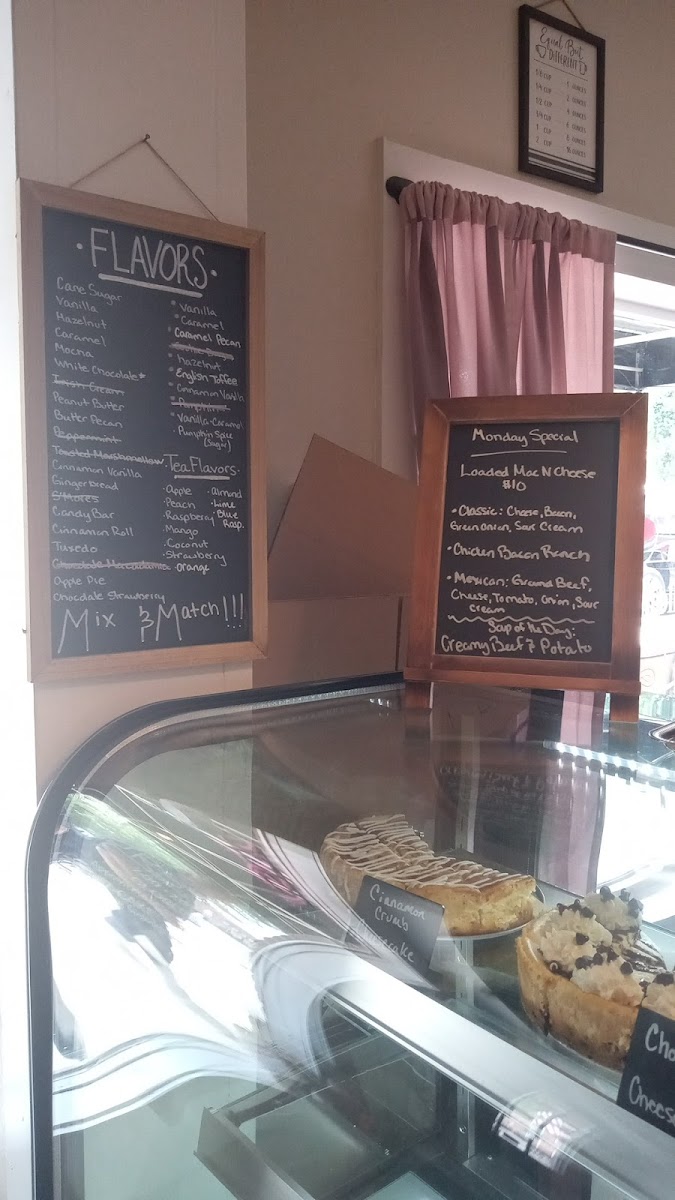 ·FLAVORS·
Cane Sugar
Vanilla
Hazelnut
Caramel
Mocha
White Chocolate*
Irish Cream
Peanut Butter
Butter Pecan
Peppermint
Toasted Marshmallow
Cinnamon Vanilla
Gingerbread
S'Mores
Candy Bar
Cinnamon Roll
Tuxedo
Chocolate Macadamia
Apple Pie
Chocolate Strawberry
* Vanilla
* Caramel
* Caramel Pecan
* Hazelnut
* English Toffee
* Cinnamon Vanilla
* Vanilla-Caramel
· Pumpkin Spice
(Sugar)
·Tea Flavors·
·Apple
·Peach
·Raspberry
·Mango
·Coconut
·Strawberry
·orange
·almond
·Lime
·Blue
Rasp.
Mix & Match!!!
Equal But
DIFFERENT
1/8 CUP 1 OUNCES
1/4 CUP 2 OUNCES
1/2 CUP 4 OUNCES
3/4 CUP 6 OUNCES
1 CUP 8 OUNCES
2 CUP 16 OUNCES
Monday Special
Loaded Mac N Cheese
$10
•Classic: Cheese, Bacon,
Green onion, Sour Cream
•Chicken Bacon Ranch
•Mexican: Ground Beef,
Cheese, Tomato, Onion, Sour
Cream
Soup of the Day:
Creamy Beef & Potato
Cinnamon
Crumb
Cheesecake
Cho
Chees